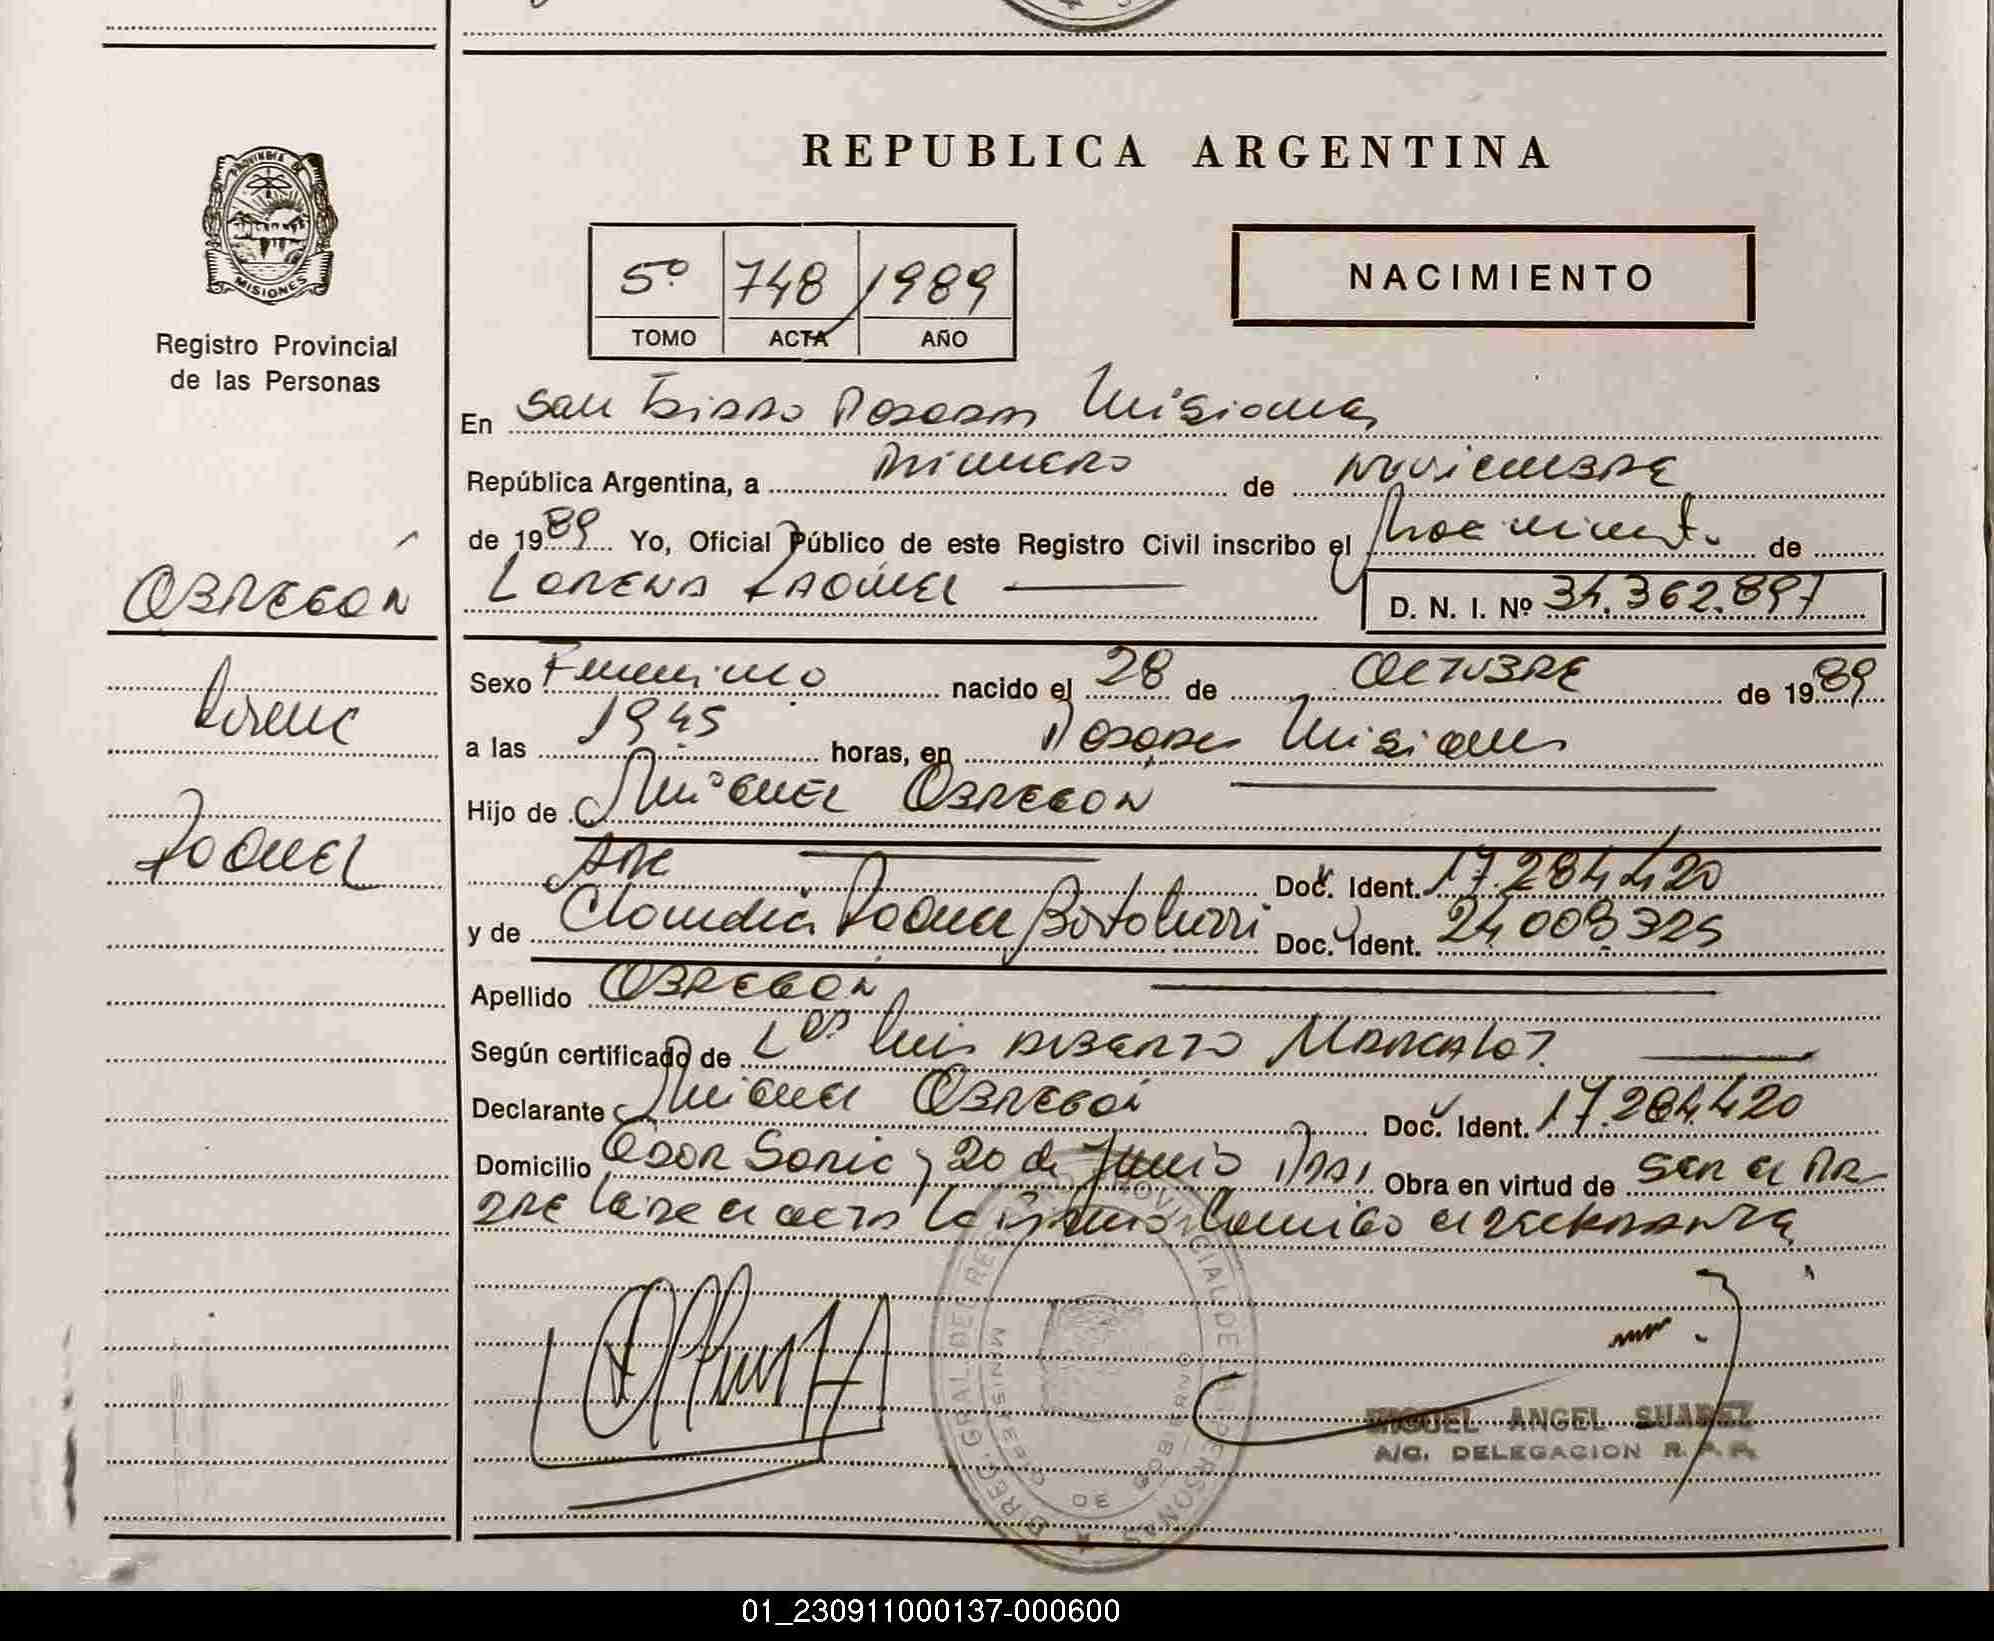 REPUBLICA ARGENTINA
PROVINCIA DE
MISIONES
Registro Provincial
de las Personas
5º 748 1989
TOMO ACTA AÑO
NACIMIENTO
En San Isidro Posadas Misiones
República Argentina, a Primero de Noviembre
de 1989 Yo, Oficial Público de este Registro Civil inscribo el Nacimiento de
Lorena Raquel D. N. I. Nº 34.362.897
OBREGÓN
Lorena
Raquel
Sexo Femenino nacido el 28 de Octubre de 1989
a las 1945 horas, en Posadas Misiones
Hijo de Miguel OBREGÓN
Doc. Ident. 17.284.420
y de Claudia Raquel Doc. Ident. 24.009.325
Apellido OBREGÓN
Según certificado de Luis Alberto
Declarante Miguel OBREGÓN Doc. Ident. 17.284.420
Domicilio 20 de Junio Obra en virtud de Ser el Pa-
dre Leída el acta la firma conmigo el declarante
DIREC. GRAL. DEL REG. PROVINCIAL DE LAS PERSONAS
MINISTERIO DE GOBIERNO
MIGUEL ANGEL SUAREZ
A/C. DELEGACION R. P. P.
01_230911000137-000600